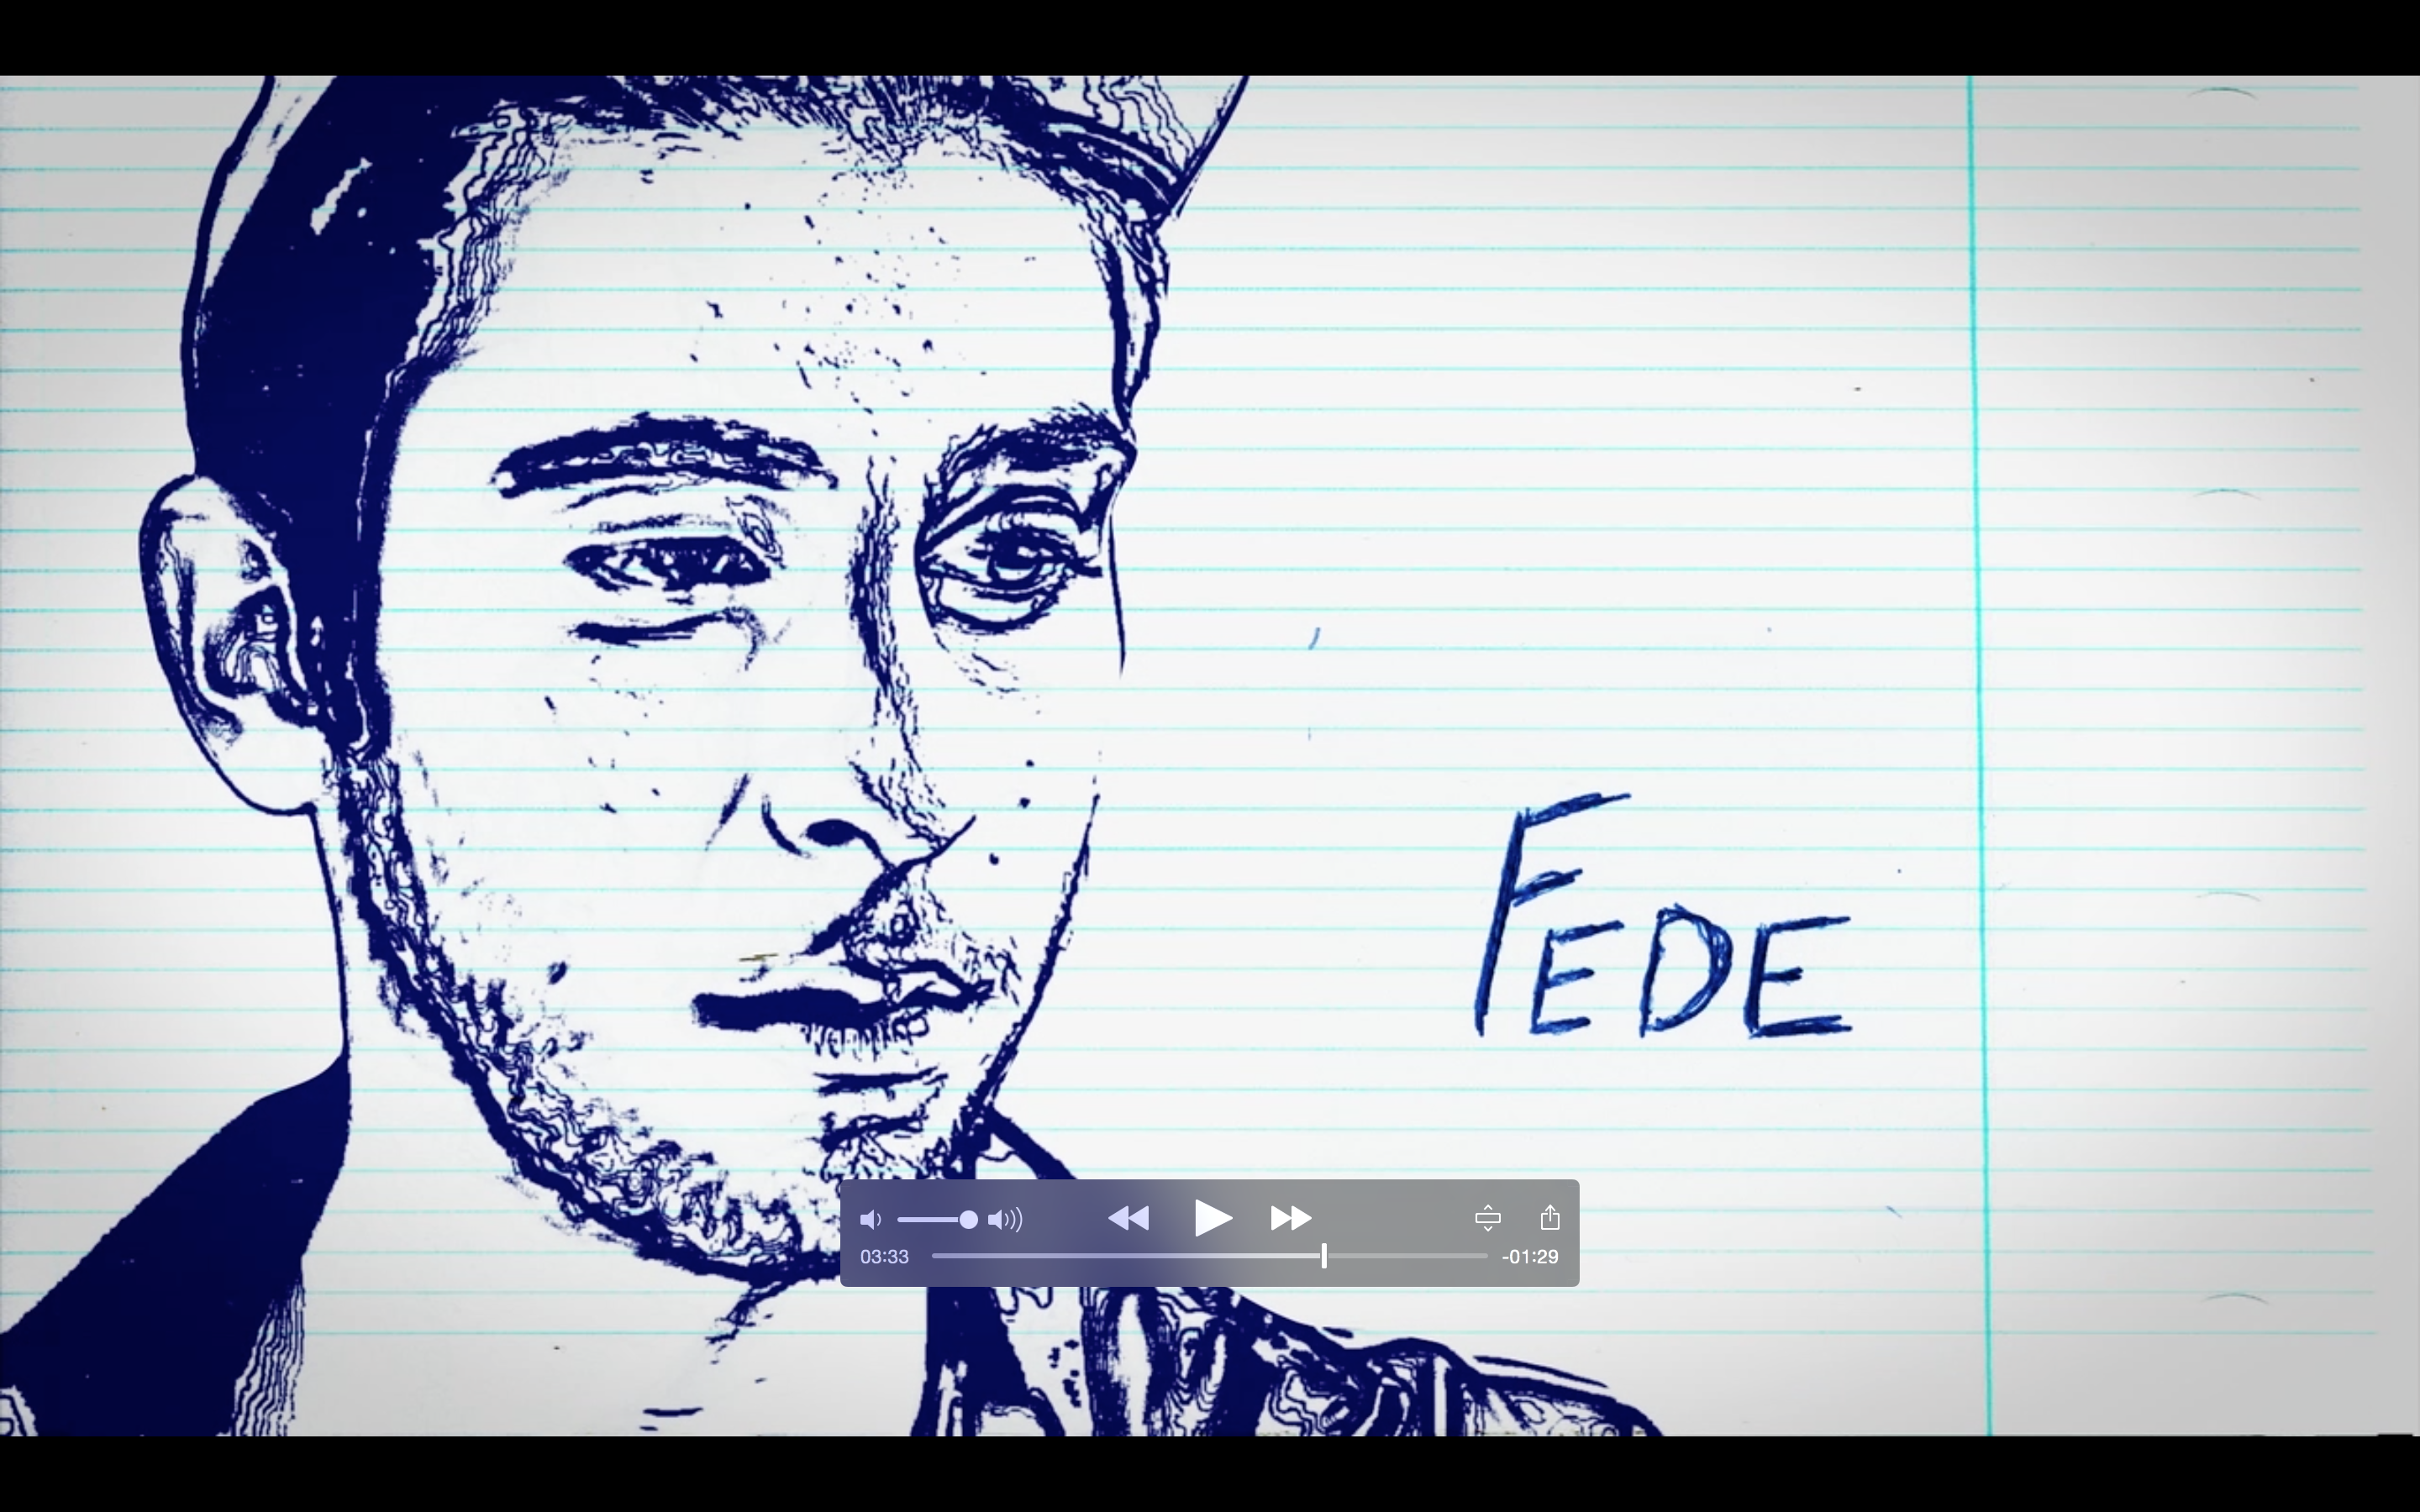 FEDE
03:33
-01:29